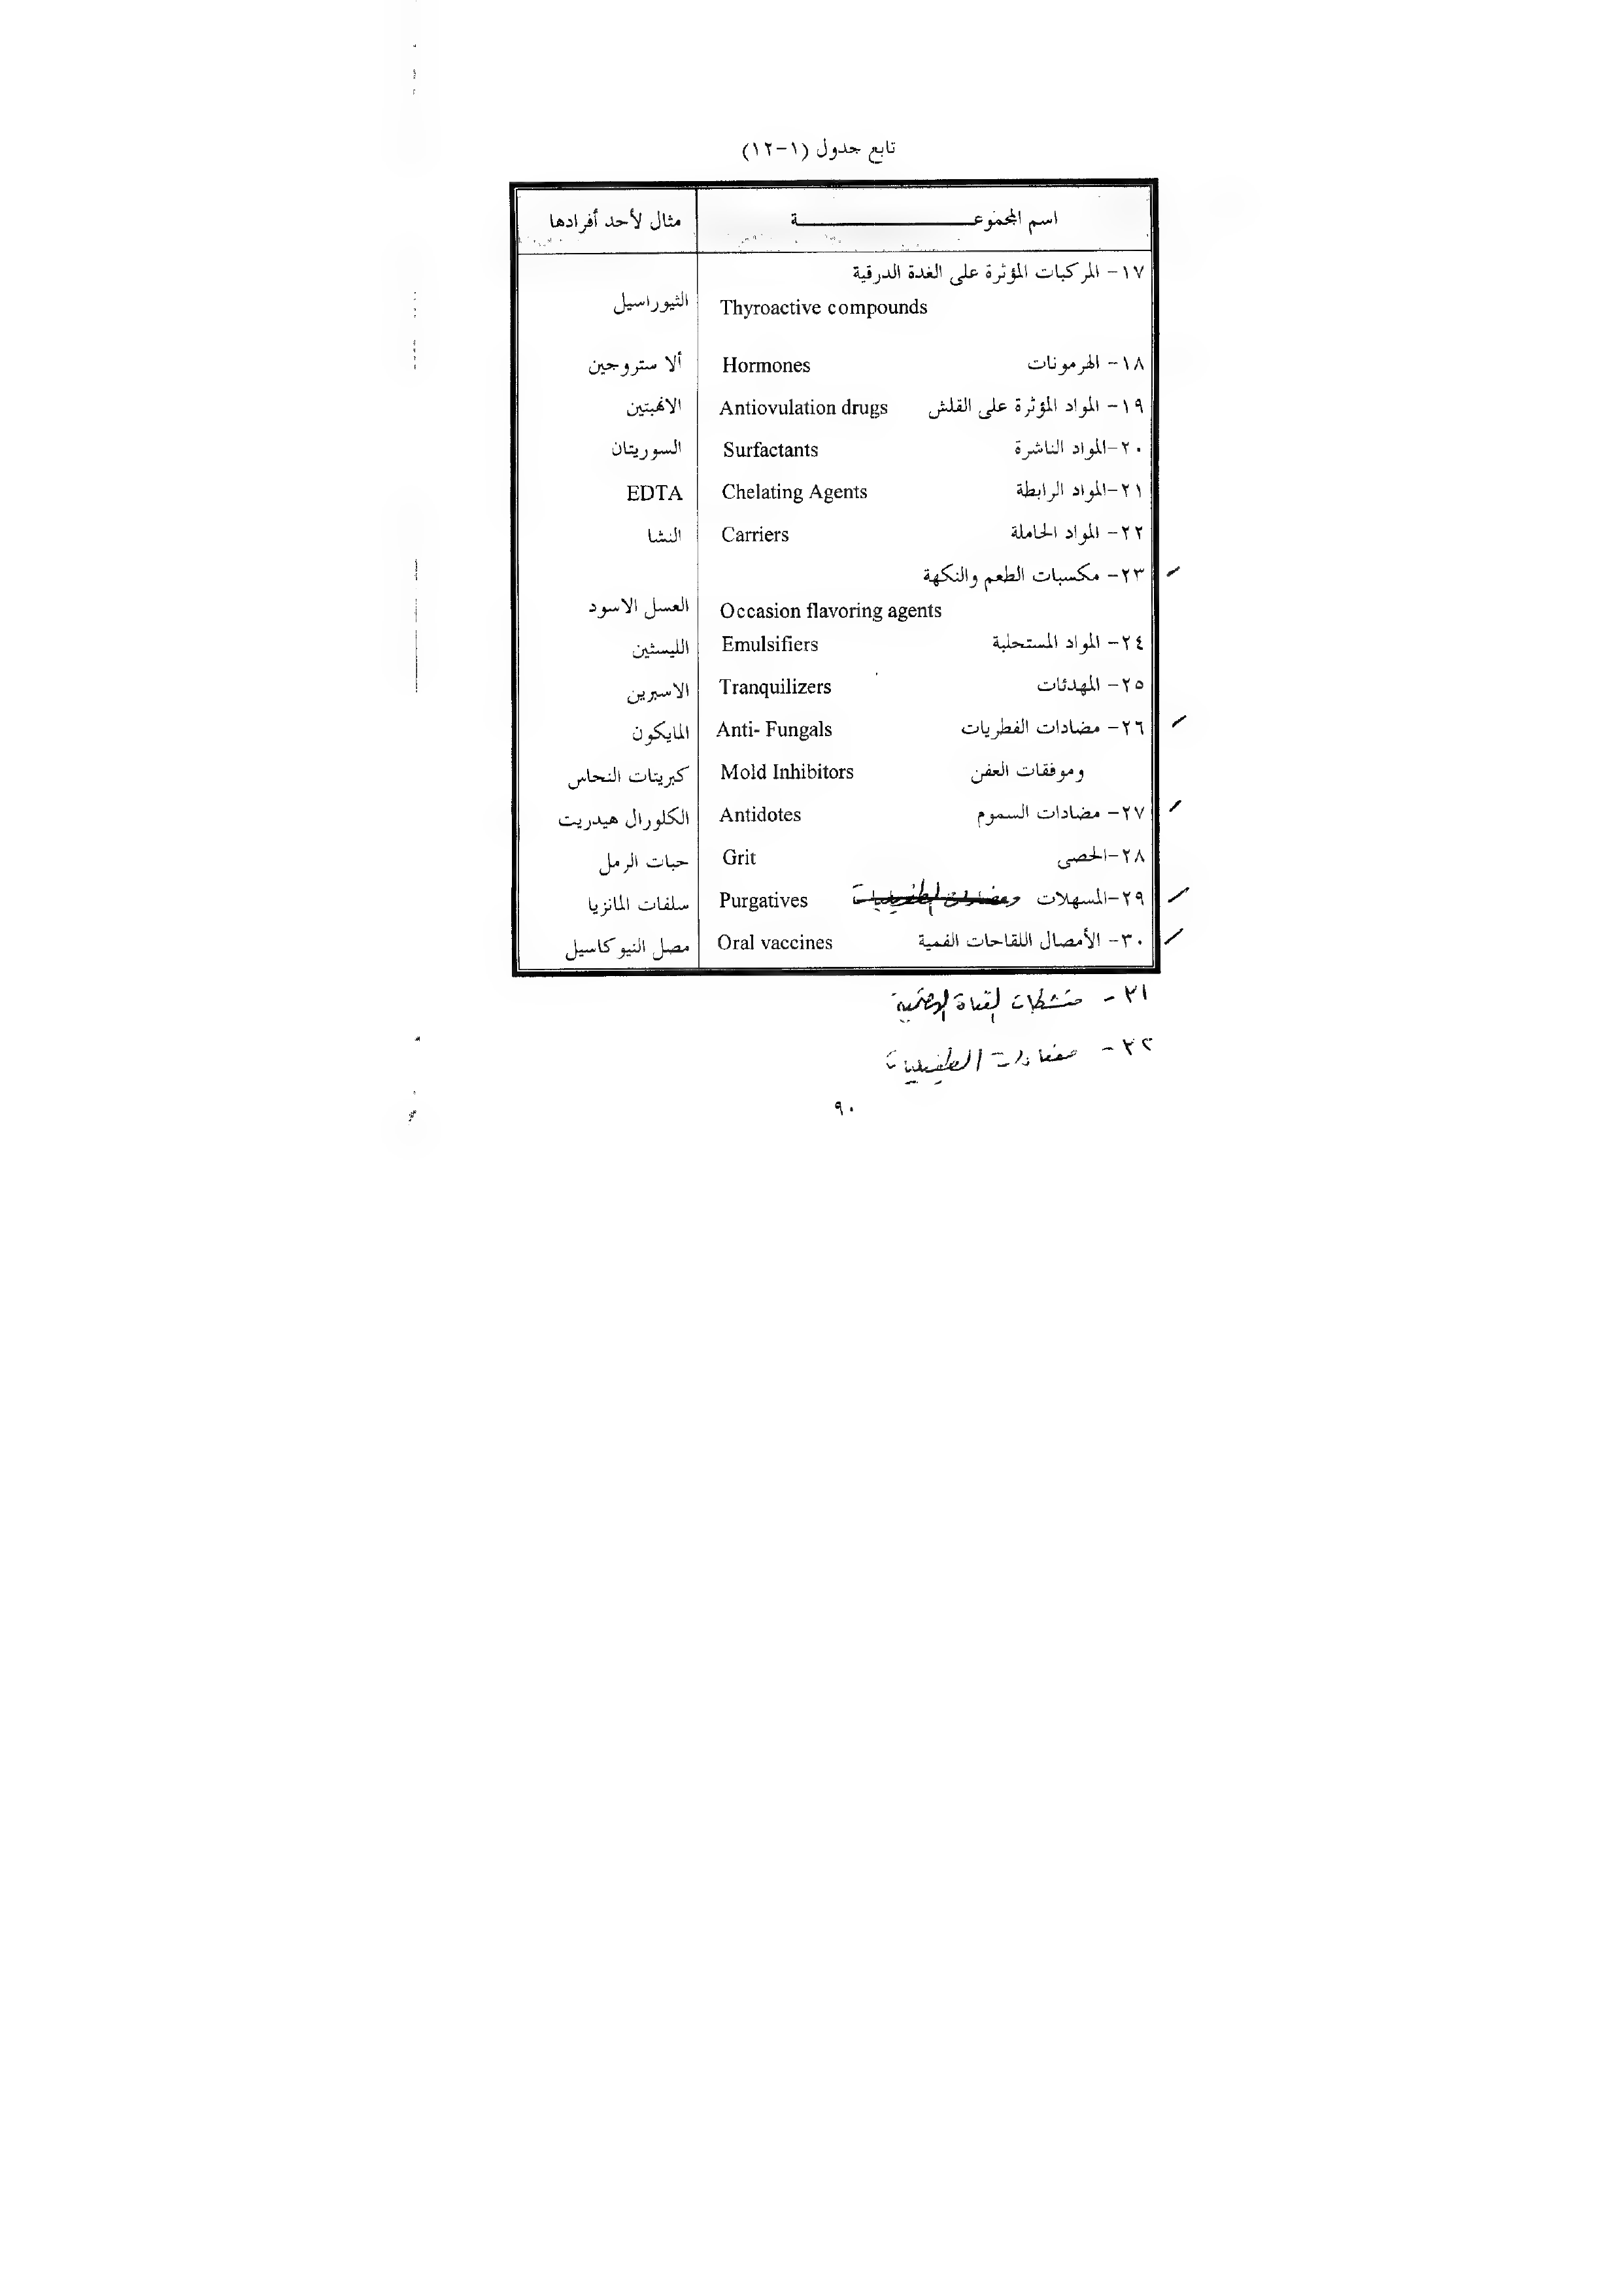 تابع جدول (١-١٢)
اسم المجموعـــــــــــــــــــــة مثال لأحد أفرادها
١٧- المركبات المؤثرة على الغدة الدرقية
Thyroactive compounds الثيوراسيل
١٨- الهرمونات Hormones ألا ستروجين
١٩- المواد المؤثرة على القلش Antiovulation drugs الانهبتين
٢٠-المواد الناشرة Surfactants السوريتان
٢١-المواد الرابطة Chelating Agents EDTA
٢٢- المواد الحاملة Carriers النشا
٢٣- مكسبات الطعم والنكهة
Occasion flavoring agents العسل الاسود
٢٤- المواد المستحلبة Emulsifiers الليسثين
٢٥- المهدئات Tranquilizers الاسبرين
٢٦- مضادات الفطريات Anti- Fungals المايكون
وموفقات العفن Mold Inhibitors كبريتات النحاس
٢٧- مضادات السموم Antidotes الكلورال هيدريت
٢٨-الحصى Grit حبات الرمل
٢٩-المسهلات ومضادات الطفيليات Purgatives سلفات المانزيا
٣٠- الأمصال اللقاحات الفمية Oral vaccines مصل النيوكاسيل
٣١- منشطات القناة الهضمية
٣٢- مضادات الطفيليات
٩٠